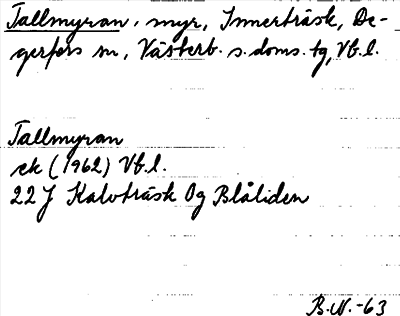 Tallmyran, myr, Innerträsk, De-
gerfors sn, Västerb. s. doms. tg, Vb. l.
Tallmyran
ek (1962) Vb. l.
22 J Kalvträsk Og Blåliden
B.N. -63